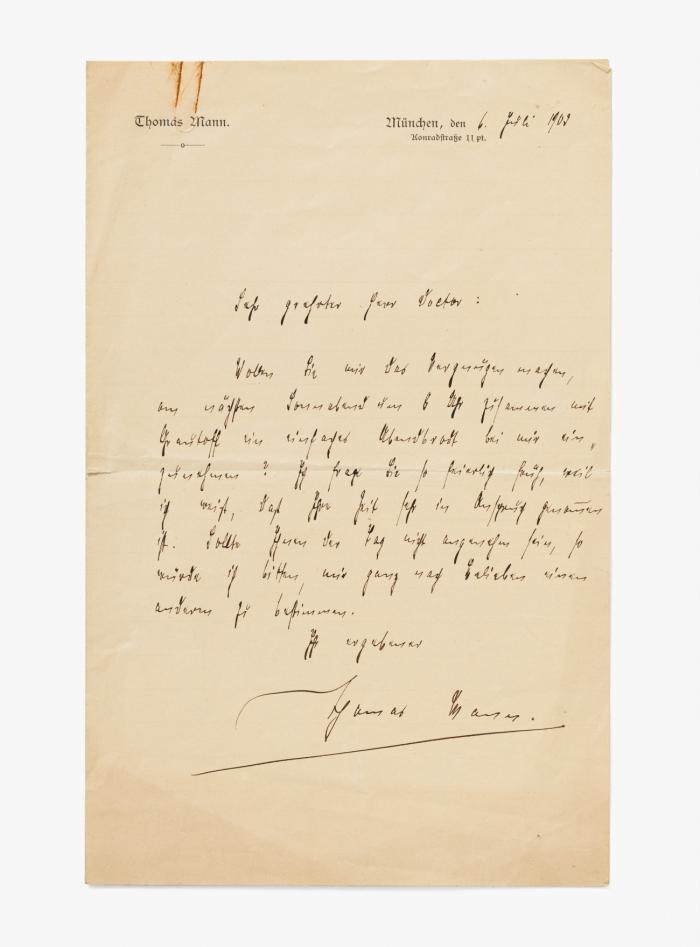 Thomas Mann.
München, den 6. Juli 1903
Konradstraße 11 pt.
Sehr geehrter Herr Doctor:
Wollen Sie mir das Vergnügen machen,
am nächsten Sonnabend um 8 Uhr zusammen mit
Grautoff ein einfaches Abendbrodt bei mir ein-
zunehmen? Ich frage Sie so feierlich früh, weil
ich weiß, daß Ihre Zeit sehr in Anspruch genommen
ist. Sollte Ihnen der Tag nicht angenehm sein, so
würde ich bitten, mir ganz nach Belieben einen
anderen zu bestimmen.
Ihr ergebener
Thomas Mann.